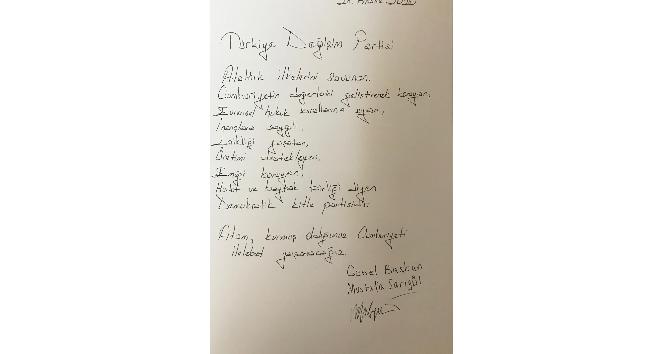 Türkiye Değişim Partisi
Atatürk ilkelerini savunan,
Cumhuriyetin değerlerini geliştirerek koruyan,
Evrensel hukuk kurallarına uyan,
İnançlara saygılı,
Laikliği yaşatan,
Üretimi destekleyen,
Emeği koruyan,
Halk ve bayrak birliği diyen
Demokratik kitle partisidir.
Atam, kurmuş olduğunuz Cumhuriyeti
ilelebet yaşatacağız.
Genel Başkan
Mustafa Sarıgül